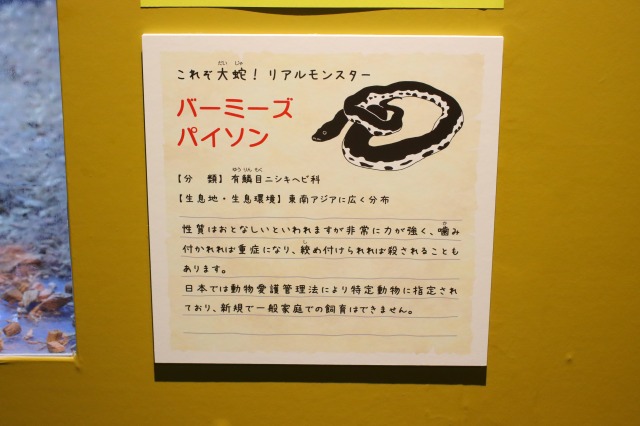 これぞ大蛇！リアルモンスター
バーミーズ
パイソン
【分　類】有鱗目ニシキヘビ科
【生息地・生息環境】東南アジアに広く分布
性質はおとなしいといわれますが非常に力が強く、噛み
付かれれば重症になり、絞め付けられれば殺されることも
あります。
日本では動物愛護管理法により特定動物に指定され
ており、新規で一般家庭での飼育はできません。